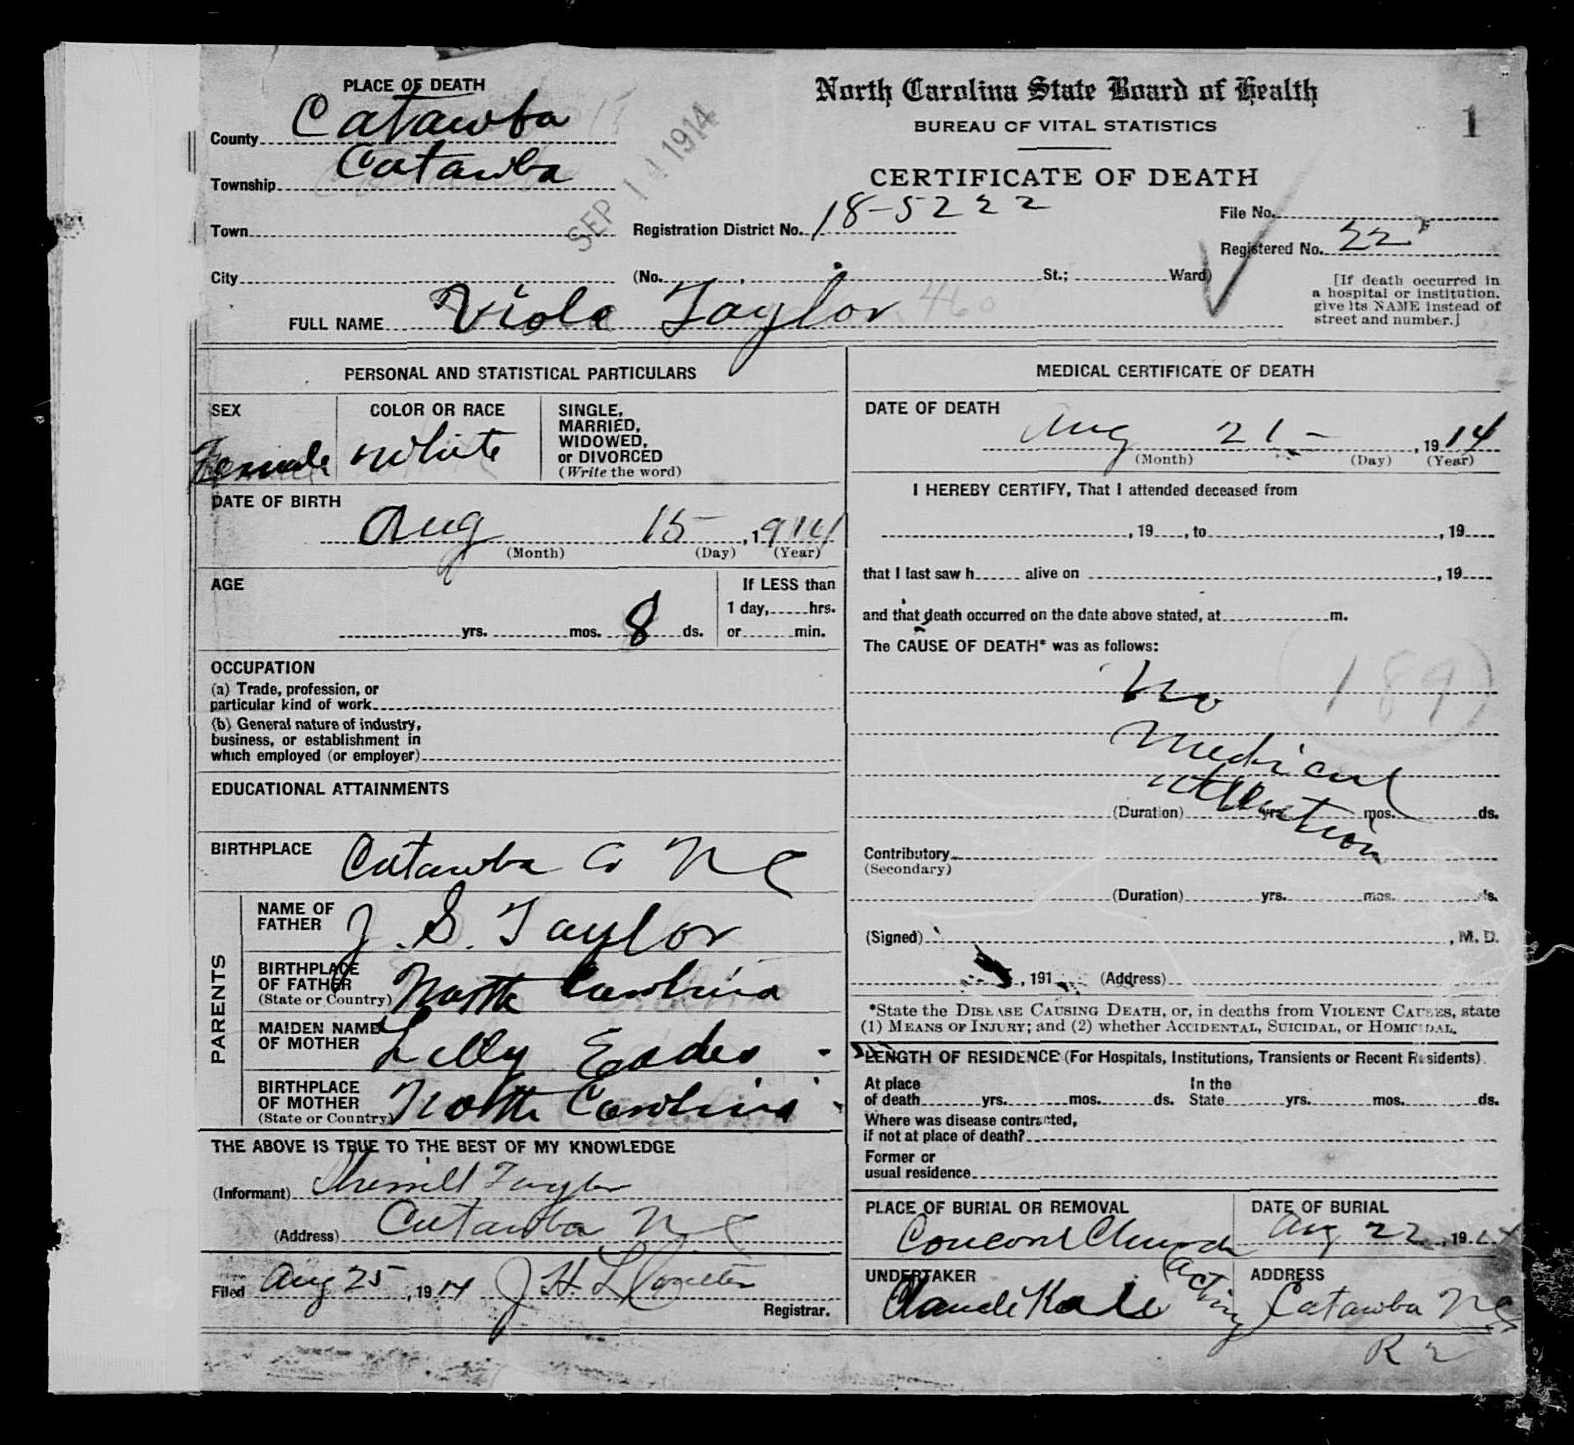 PLACE OF DEATH
North Carolina State Board of Health
BUREAU OF VITAL STATISTICS
1
CERTIFICATE OF DEATH
County Catawba
Township Catawba
SEP 14 1914
Town
Registration District No. 18-5222
File No.
Registered No. 22
City
(No. St.; Ward)
[If death occurred in
a hospital or institution,
give its NAME instead of
street and number.]
FULL NAME Viola Taylor 460
PERSONAL AND STATISTICAL PARTICULARS
SEX
Female
COLOR OR RACE
White
SINGLE,
MARRIED,
WIDOWED,
or DIVORCED
(Write the word)
DATE OF BIRTH
Aug 15 , 1914
(Month) (Day) (Year)
AGE
yrs. mos. 8 ds.
If LESS than
1 day, hrs.
or min.
OCCUPATION
(a) Trade, profession, or
particular kind of work
(b) General nature of industry,
business, or establishment in
which employed (or employer)
EDUCATIONAL ATTAINMENTS
BIRTHPLACE Catawba Co N C
PARENTS
NAME OF
FATHER J. S. Taylor
BIRTHPLACE
OF FATHER
(State or Country) North Carolina
MAIDEN NAME
OF MOTHER Lilly Eades
BIRTHPLACE
OF MOTHER
(State or Country) North Carolina
THE ABOVE IS TRUE TO THE BEST OF MY KNOWLEDGE
(Informant) Sherrill Taylor
(Address) Catawba N C
Filed Aug 25, 1914 J H L Coulter
Registrar.
MEDICAL CERTIFICATE OF DEATH
DATE OF DEATH
Aug 21 - , 1914
(Month) (Day) (Year)
I HEREBY CERTIFY, That I attended deceased from
, 19 , to , 19
that I last saw h alive on , 19
and that death occurred on the date above stated, at m.
The CAUSE OF DEATH* was as follows:
No
189
Medical
attention
(Duration) yrs. mos. ds.
Contributory
(Secondary)
(Duration) yrs. mos. ds.
(Signed) , M. D.
, 191 (Address)
*State the DISEASE CAUSING DEATH, or, in deaths from VIOLENT CAUSES, state
(1) MEANS OF INJURY; and (2) whether ACCIDENTAL, SUICIDAL, or HOMICIDAL.
LENGTH OF RESIDENCE (For Hospitals, Institutions, Transients or Recent Residents)
At place
of death yrs. mos. ds.
In the
State yrs. mos. ds.
Where was disease contracted,
if not at place of death?
Former or
usual residence
PLACE OF BURIAL OR REMOVAL
Concord Church
DATE OF BURIAL
Aug 22, 1914
UNDERTAKER
Claude Kale
acting
ADDRESS
Catawba N C
R 2